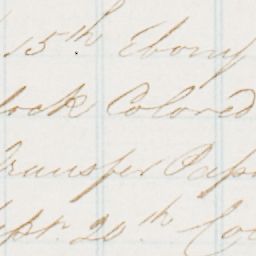 15th Ebony
lock Colored
Transfer Pap
ept. 20th Co